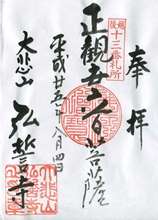 奉拝
越後
十三番札所
正觀世音菩薩
平成廿五年八月四日
大悲山
弘誓寺